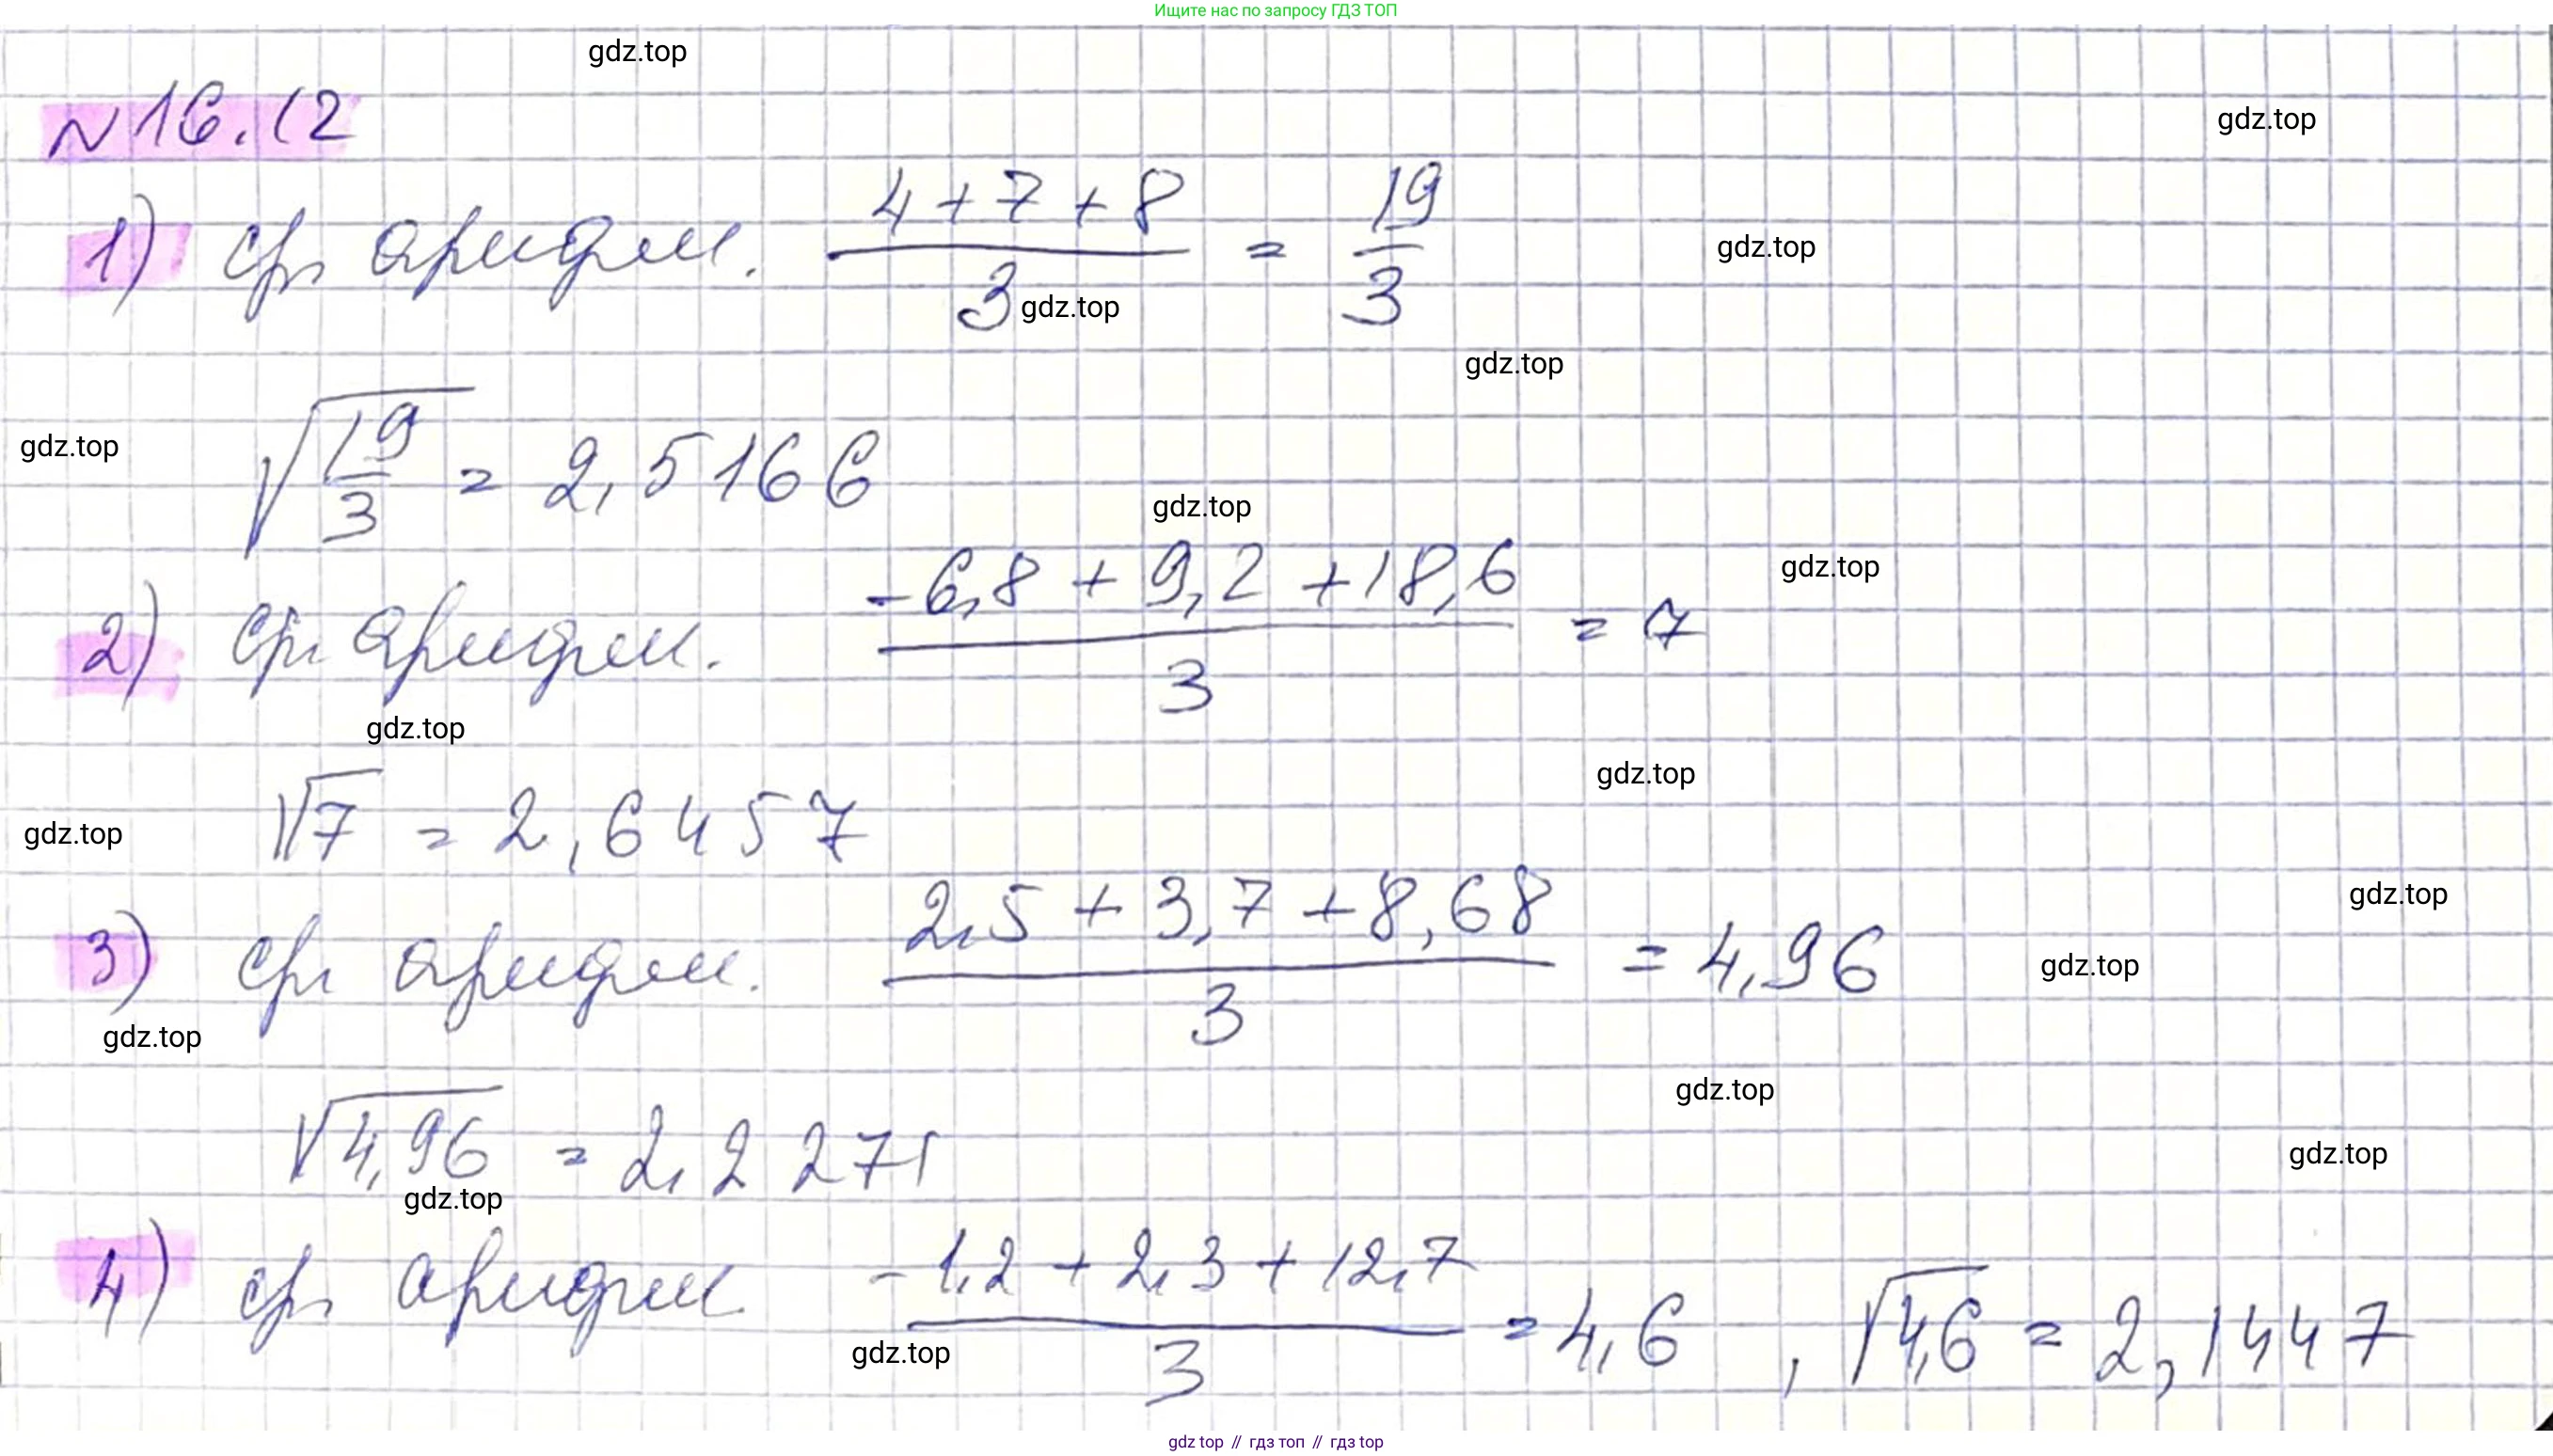 Ищите нас по запросу ГДЗ ТОП
gdz.top
№16.12
gdz.top
1) ср. арифм. (4+7+8)/3 = 19/3
gdz.top
gdz.top
gdz.top
√(19/3) = 2,5166
gdz.top
gdz.top
2) ср. арифм. (-6,8 + 9,2 + 18,6)/3 = 7
gdz.top
gdz.top
gdz.top
√7 = 2,6457
gdz.top
3) ср. арифм. (2,5 + 3,7 + 8,68)/3 = 4,96
gdz.top
gdz.top
gdz.top
gdz.top
√4,96 = 2,2271
gdz.top
gdz.top
4) ср. арифм. (-1,2 + 2,3 + 12,7)/3 = 4,6 , √4,6 = 2,1447
gdz.top
gdz top // гдз топ // гдз top